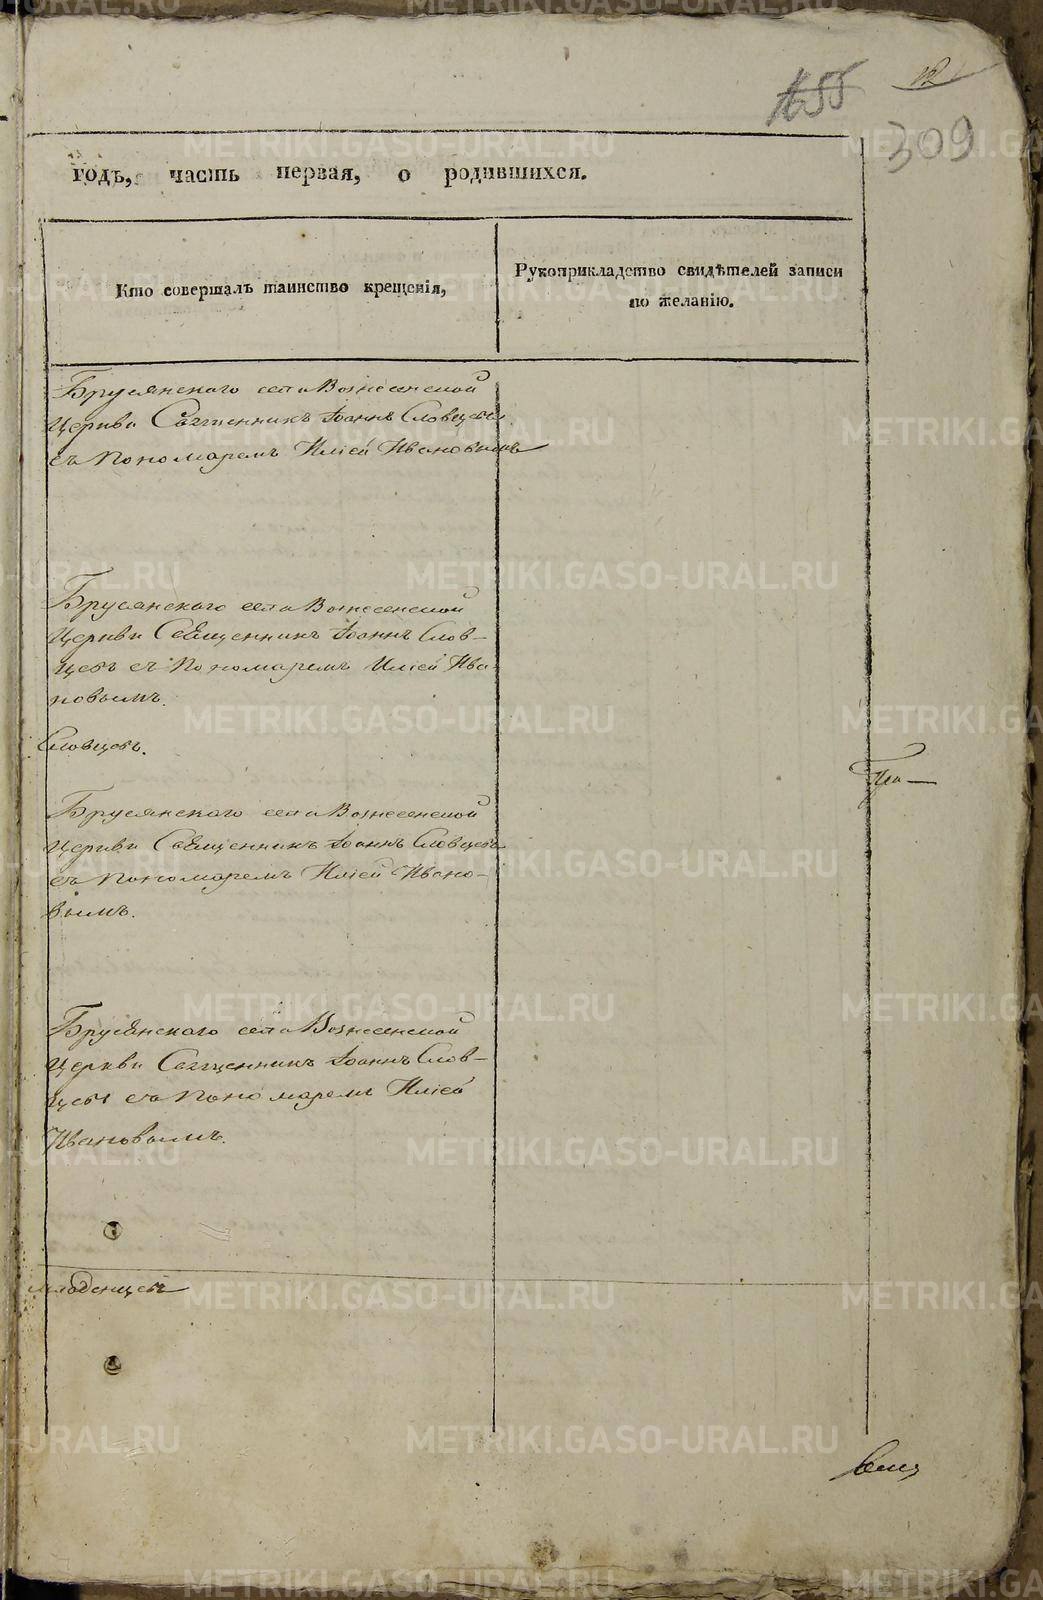 309
годъ, часть первая, о родившихся.
Кто совершалъ таинство крещенія,
Рукоприкладство свидѣтелей записи
по желанію.
Брусянскаго села Вознесенской
Церкви Священникъ Іоаннъ Словцевъ
съ Пономаремъ Иліей Ивановымъ
Брусянскаго села Вознесенской
Церкви Священникъ Іоаннъ Слов-
цевъ съ Пономаремъ Иліей Ива-
новымъ.
Словцевъ.
Брусянскаго села Вознесенской
Церкви Священникъ Іоаннъ Словцевъ
съ Пономаремъ Иліей Ивано-
вымъ.
Брусянскаго села Вознесенской
Церкви Священникъ Іоаннъ Слов-
цевъ съ Пономаремъ Иліей
Ивановымъ.
младенцевъ
METRIKI.GASO-URAL.RU